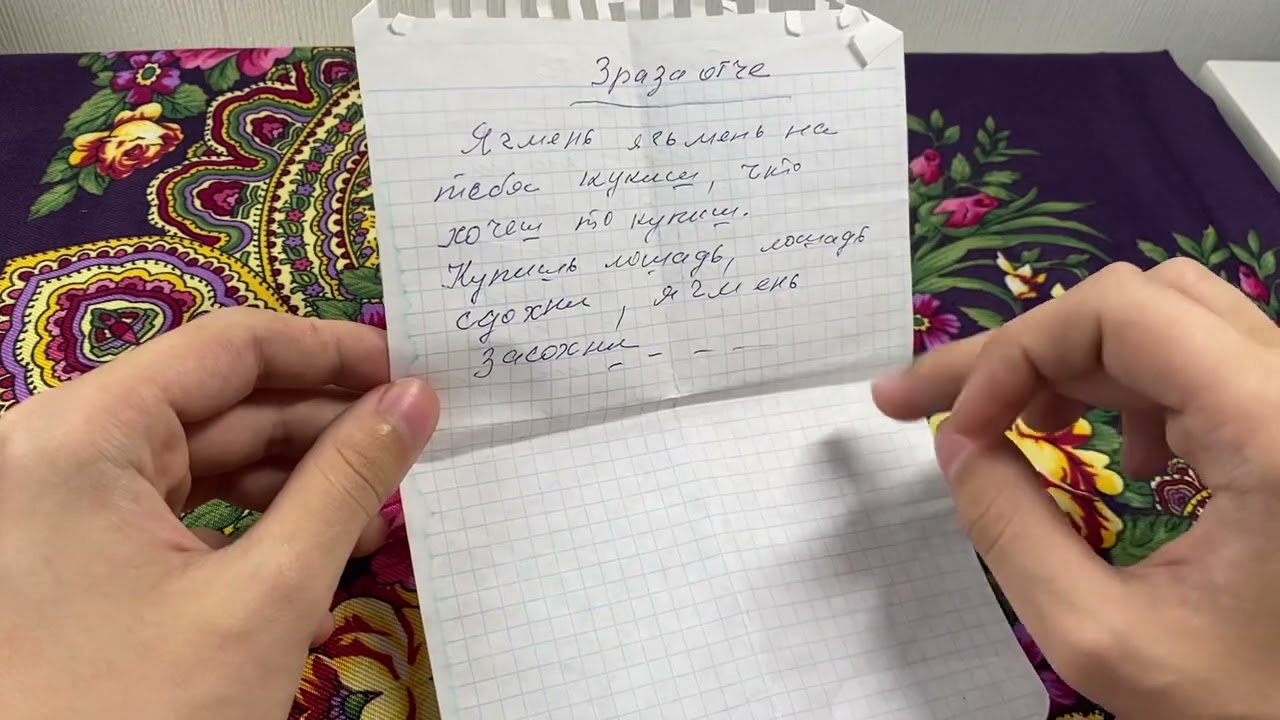 3 раза отче
Ягмень ягьмень на
тебя кукиш, что
хочеш то купиш.
Купишь лошадь, лошадь
сдохни, ягмень
засохни - - -